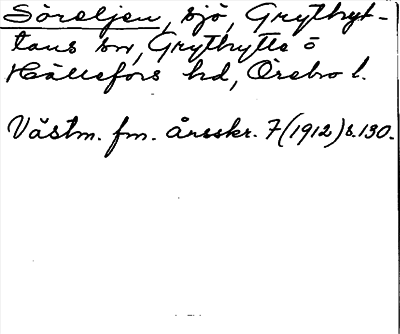 Söräljen, sjö, Grythyt-
tans sn, Grythytte o
Hällefors hd, Örebro l.
Västm. fm. årsskr. 7 (1912) s. 130.